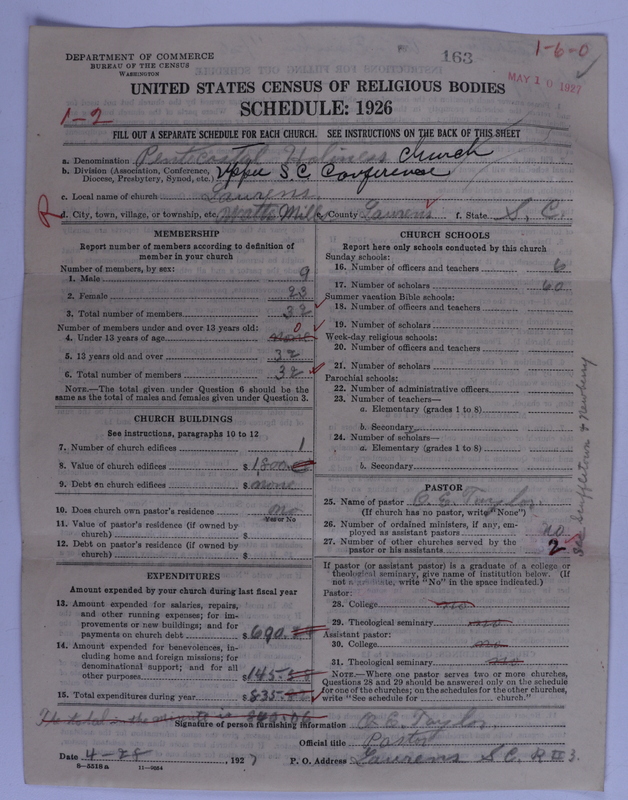 163
1-6-0
MAY 10 1927
DEPARTMENT OF COMMERCE
BUREAU OF THE CENSUS
WASHINGTON
UNITED STATES CENSUS OF RELIGIOUS BODIES
SCHEDULE: 1926
1-2
FILL OUT A SEPARATE SCHEDULE FOR EACH CHURCH. SEE INSTRUCTIONS ON THE BACK OF THIS SHEET
a. Denomination Pentecostal Holiness Church
b. Division (Association, Conference, Diocese, Presbytery, Synod, etc.) Upper S C Conference
c. Local name of church Laurens
R
d. City, town, village, or township, etc. Watts Mills e. County Laurens f. State S. C.
MEMBERSHIP
Report number of members according to definition of member in your church
Number of members, by sex:
1. Male 9
2. Female 23
3. Total number of members 32
Number of members under and over 13 years old:
4. Under 13 years of age none 0
5. 13 years old and over 32
6. Total number of members 32
NOTE.—The total given under Question 6 should be the same as the total of males and females given under Question 3.
CHURCH BUILDINGS
See instructions, paragraphs 10 to 12
7. Number of church edifices 1
8. Value of church edifices $ 1,800
9. Debt on church edifices $ none
10. Does church own pastor's residence no
Yes or No
11. Value of pastor's residence (if owned by church) $
12. Debt on pastor's residence (if owned by church) $
EXPENDITURES
Amount expended by your church during last fiscal year
13. Amount expended for salaries, repairs, and other running expenses; for improvements or new buildings; and for payments on church debt $ 690.
14. Amount expended for benevolences, including home and foreign missions; for denominational support; and for all other purposes $ 145.
15. Total expenditures during year $ 835.
CHURCH SCHOOLS
Report here only schools conducted by this church
Sunday schools:
16. Number of officers and teachers 6
17. Number of scholars 60
Summer vacation Bible schools:
18. Number of officers and teachers
19. Number of scholars
Week-day religious schools:
20. Number of officers and teachers
21. Number of scholars
Parochial schools:
22. Number of administrative officers
23. Number of teachers—
a. Elementary (grades 1 to 8)
b. Secondary
24. Number of scholars—
a. Elementary (grades 1 to 8)
b. Secondary
PASTOR
25. Name of pastor O. E. Taylor
(If church has no pastor, write "None")
26. Number of ordained ministers, if any, employed as assistant pastors no
27. Number of other churches served by the pastor or his assistants 2
See Scuffletown & Newberry
If pastor (or assistant pastor) is a graduate of a college or theological seminary, give name of institution below. (If not a graduate, write "No" in the space indicated.)
Pastor:
28. College no
29. Theological seminary no
Assistant pastor:
30. College no
31. Theological seminary no
NOTE.—Where one pastor serves two or more churches, Questions 28 and 29 should be answered only on the schedule for one of the churches; on the schedules for the other churches, write "See schedule for church."
Signature of person furnishing information O. E. Taylor
Official title Pastor
Date 4-28, 1927 P. O. Address Laurens S C. R # 3.
8-5518a 11-9864